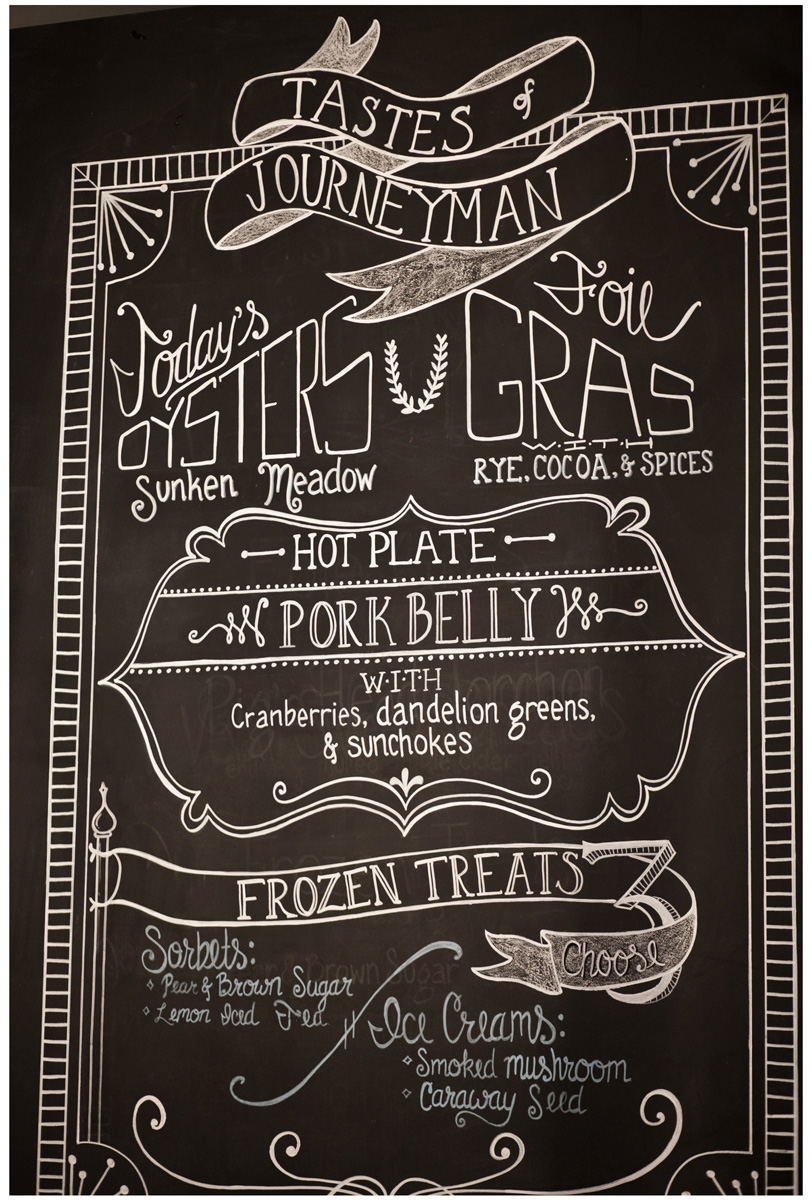 TASTES of
JOURNEYMAN
Today's
OYSTERS
Sunken Meadow
Foie
GRAS
W·I·T·H
RYE, COCOA, & SPICES
HOT PLATE
PORK BELLY
W·I·T·H
Cranberries, dandelion greens,
& sunchokes
FROZEN TREATS
Choose 3
Sorbets:
Pear & Brown Sugar
Lemon Iced Tea
Ice Creams:
Smoked mushroom
Caraway Seed